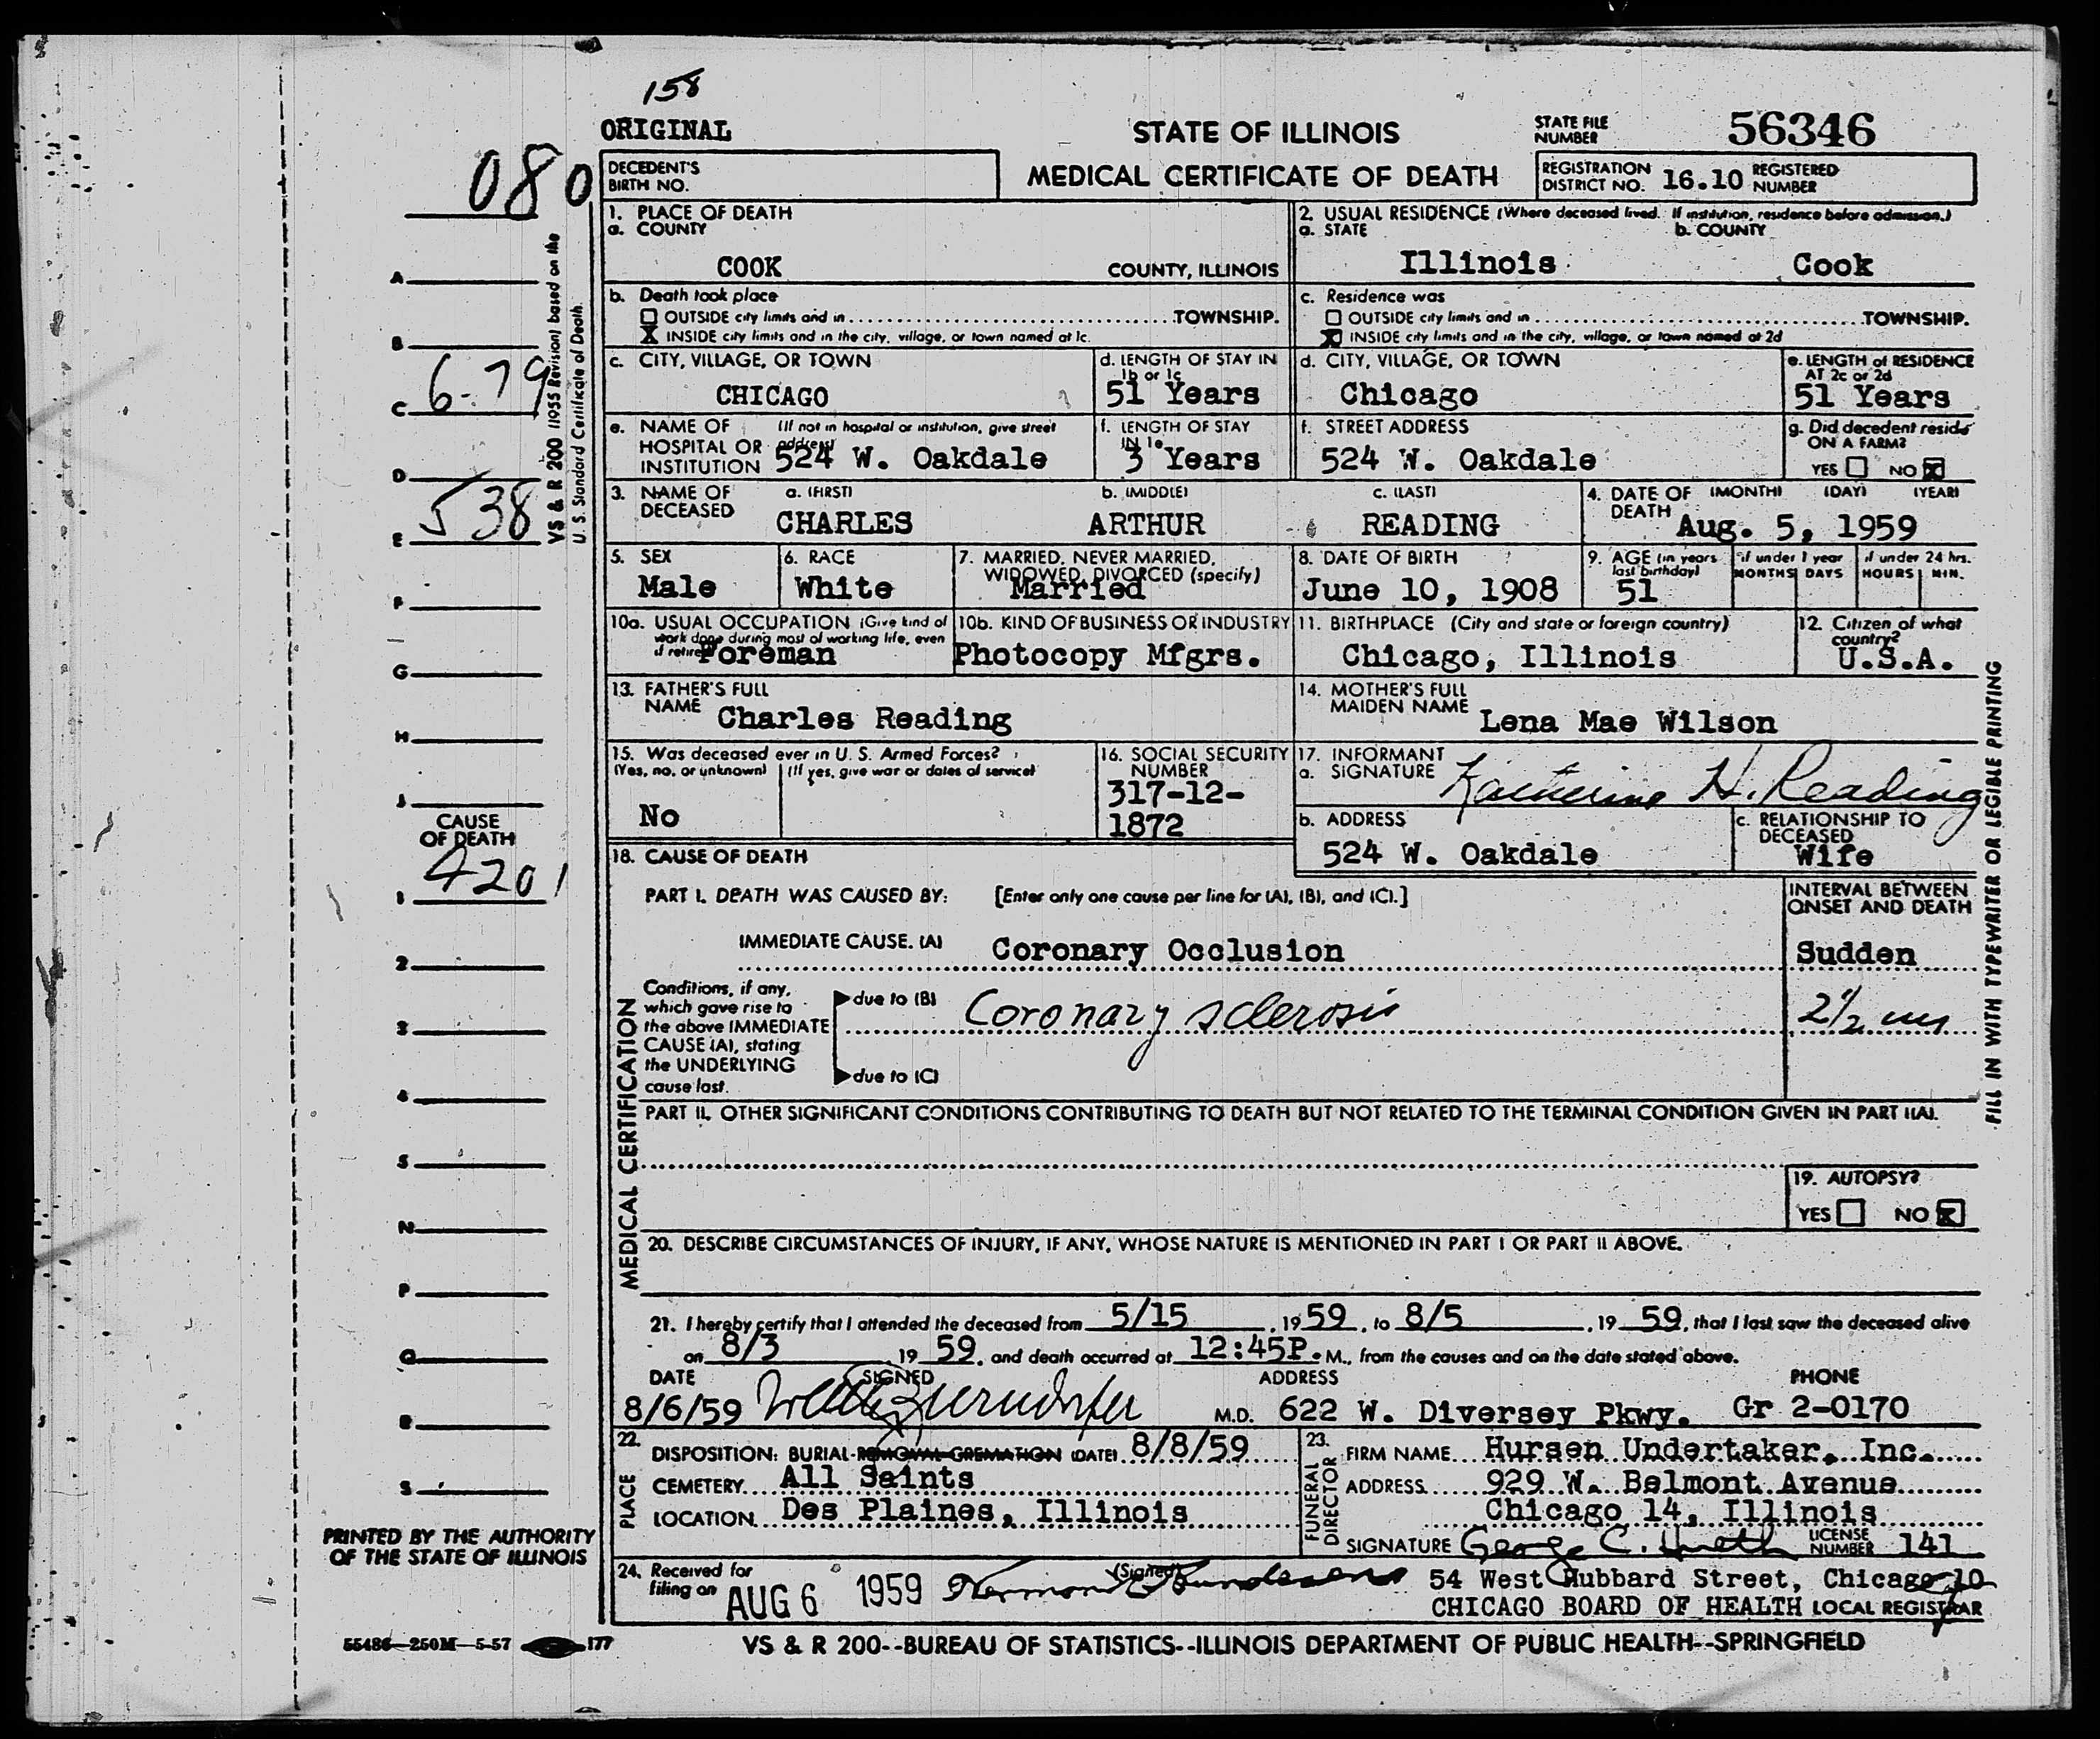 158
ORIGINAL
STATE OF ILLINOIS
STATE FILE NUMBER 56346
080
DECEDENT'S BIRTH NO.
MEDICAL CERTIFICATE OF DEATH
REGISTRATION DISTRICT NO. 16.10 REGISTERED NUMBER
VS & R 200 (1955 Revision) based on the
U. S. Standard Certificate of Death.
1. PLACE OF DEATH
a. COUNTY
COOK COUNTY, ILLINOIS
2. USUAL RESIDENCE (Where deceased lived. If institution, residence before admission.)
a. STATE b. COUNTY
Illinois Cook
b. Death took place
OUTSIDE city limits and in TOWNSHIP.
X INSIDE city limits and in the city, village, or town named at 1c.
c. Residence was
OUTSIDE city limits and in TOWNSHIP.
X INSIDE city limits and in the city, village, or town named at 2d
c. CITY, VILLAGE, OR TOWN
CHICAGO
d. LENGTH OF STAY IN 1b or 1c
51 Years
d. CITY, VILLAGE, OR TOWN
Chicago
e. LENGTH of RESIDENCE AT 2c or 2d
51 Years
e. NAME OF HOSPITAL OR INSTITUTION (If not in hospital or institution, give street address)
524 W. Oakdale
f. LENGTH OF STAY IN 1e
3 Years
f. STREET ADDRESS
524 W. Oakdale
g. Did decedent reside ON A FARM?
YES NO X
3. NAME OF DECEASED a. (FIRST) b. (MIDDLE) c. (LAST)
CHARLES ARTHUR READING
4. DATE OF DEATH (MONTH) (DAY) (YEAR)
Aug. 5, 1959
5. SEX
Male
6. RACE
White
7. MARRIED, NEVER MARRIED, WIDOWED, DIVORCED (specify)
Married
8. DATE OF BIRTH
June 10, 1908
9. AGE (in years last birthday) if under 1 year if under 24 hrs.
MONTHS DAYS HOURS MIN.
51
10a. USUAL OCCUPATION (Give kind of work done during most of working life, even if retired)
Foreman
10b. KIND OF BUSINESS OR INDUSTRY
Photocopy Mfgrs.
11. BIRTHPLACE (City and state or foreign country)
Chicago, Illinois
12. Citizen of what country?
U.S.A.
13. FATHER'S FULL NAME
Charles Reading
14. MOTHER'S FULL MAIDEN NAME
Lena Mae Wilson
15. Was deceased ever in U. S. Armed Forces?
(Yes, no, or unknown) (If yes, give war or dates of service)
No
16. SOCIAL SECURITY NUMBER
317-12-
1872
17. INFORMANT
a. SIGNATURE Katherine H. Reading
b. ADDRESS
524 W. Oakdale
c. RELATIONSHIP TO DECEASED
Wife
18. CAUSE OF DEATH
PART I. DEATH WAS CAUSED BY: [Enter only one cause per line for (A), (B), and (C).]
INTERVAL BETWEEN ONSET AND DEATH
IMMEDIATE CAUSE. (A) Coronary Occlusion Sudden
Conditions, if any, which gave rise to the above IMMEDIATE CAUSE (A), stating the UNDERLYING cause last.
due to (B) Coronary sclerosis 2½
due to (C)
PART II. OTHER SIGNIFICANT CONDITIONS CONTRIBUTING TO DEATH BUT NOT RELATED TO THE TERMINAL CONDITION GIVEN IN PART I(A).
19. AUTOPSY?
YES NO X
MEDICAL CERTIFICATION
20. DESCRIBE CIRCUMSTANCES OF INJURY, IF ANY, WHOSE NATURE IS MENTIONED IN PART I OR PART II ABOVE.
21. I hereby certify that I attended the deceased from 5/15, 1959, to 8/5, 19 59, that I last saw the deceased alive
on 8/3 19 59, and death occurred at 12:45P.M., from the causes and on the date stated above.
DATE SIGNED ADDRESS PHONE
8/6/59 M.D. 622 W. Diversey Pkwy. Gr 2-0170
22. PLACE
DISPOSITION: BURIAL-REMOVAL-CREMATION (DATE) 8/8/59
CEMETERY All Saints
LOCATION Des Plaines, Illinois
23. FUNERAL DIRECTOR
FIRM NAME Hursen Undertaker, Inc.
ADDRESS 929 W. Belmont Avenue
Chicago 14, Illinois
SIGNATURE George C. LICENSE NUMBER 141
24. Received for filing on AUG 6 1959 (Signed) Herman Bundesen
54 West Hubbard Street, Chicago 10
CHICAGO BOARD OF HEALTH LOCAL REGISTRAR
FILL IN WITH TYPEWRITER OR LEGIBLE PRINTING
A
B
C 6-79
D
E 538
F
G
H
J
CAUSE OF DEATH
1 4201
2
3
4
5
N
P
Q
R
S
PRINTED BY THE AUTHORITY
OF THE STATE OF ILLINOIS
55486—250M—5-57 177
VS & R 200--BUREAU OF STATISTICS--ILLINOIS DEPARTMENT OF PUBLIC HEALTH--SPRINGFIELD